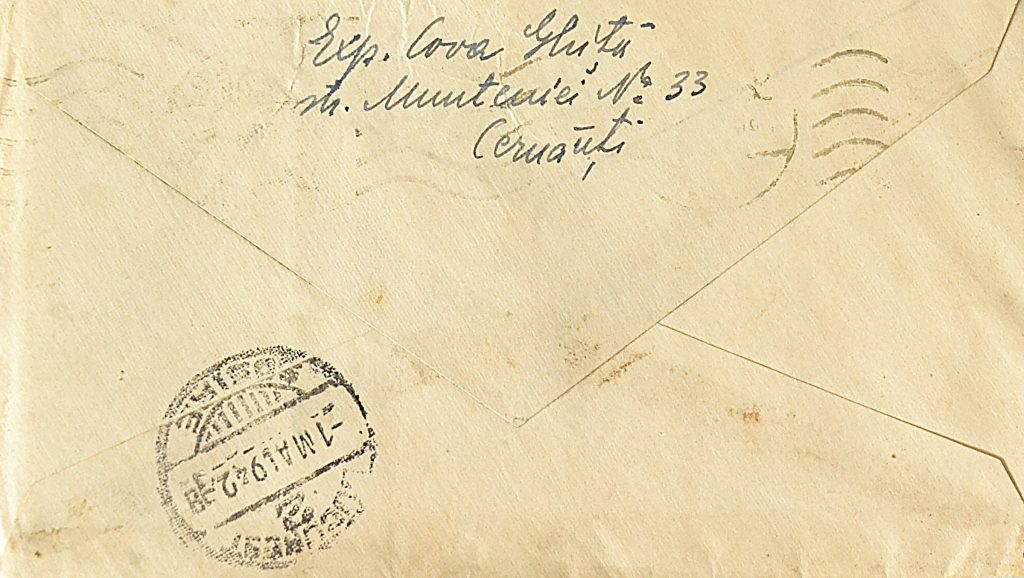 Exp. Cova Ghiță
str. Munteniei No 33
Cernăuți
SOSIRE
-1 MAI 942